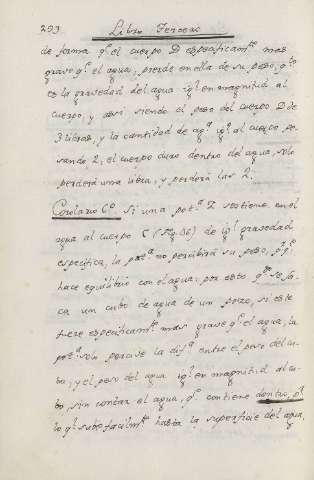 293 Libro Tercero
de forma q.e el cuerpo D especificam.te mas
grave q.e el agua, pierde en ella de su peso, q.to
es la gravedad del agua ig.l en magnitud al
cuerpo, y assi siendo el peso del cuerpo D de
3 libras, y la cantidad de ag.a ig.l al cuerpo pe-
sando 2, el cuerpo duro dentro del agua, solo
perderá una libra, y perderá las 2.
Corolario C.o Si una pot.a Z sostiene en el
agua al cuerpo C (Fig. 86) de ig.l gravedad
especifica, la pot.a no percibirá su peso, p.r q.e
hace equilibrio con el agua: por esto q.do se sa-
ca un cubo de agua de un pozo, si este
fuere especificam.te mas grave q.e el agua, la
pot.a solo percive la dif.a entre el peso del cu-
bo, y el peso del agua ig.l en magnitud al cu-
bo, sin contar el agua, q.e contiene dentro, p.r
lo q.l sube facilm.te hasta la superficie del agua,